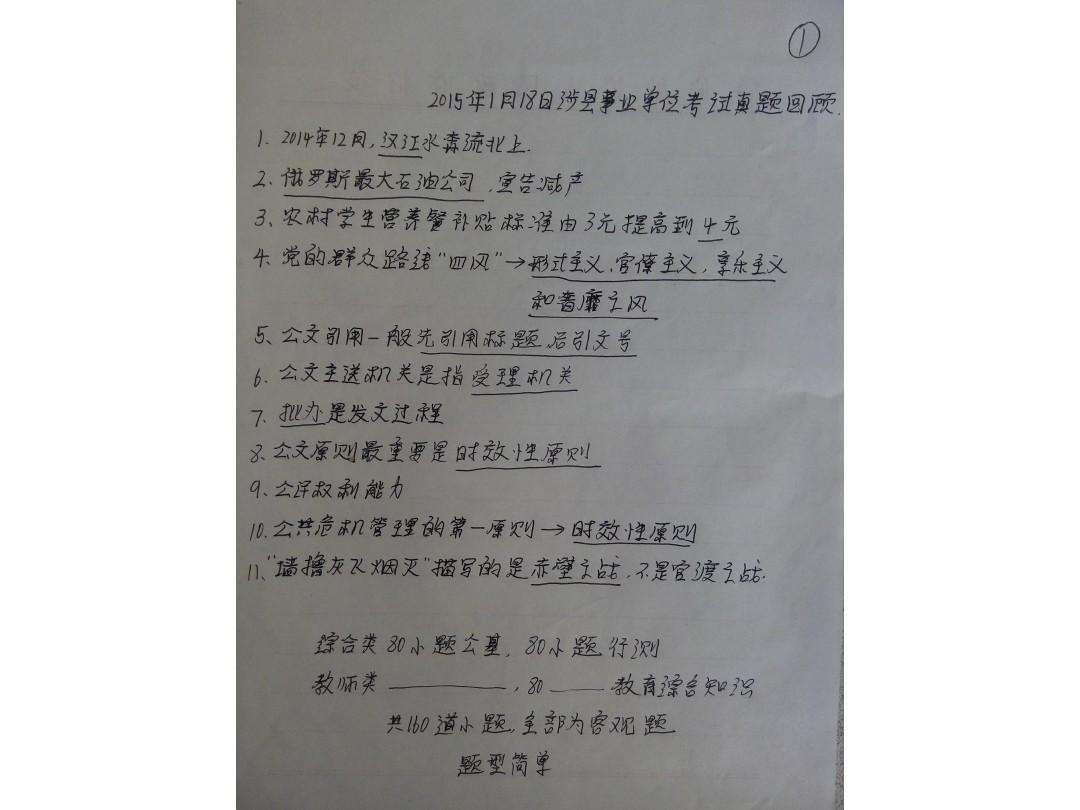 ①
2015年1月18日涉县事业单位考试真题回顾.
1. 2014年12月,汉江水奔流北上.
2、俄罗斯最大石油公司,宣告减产
3、农村学生营养餐补贴标准由3元提高到4元
4、党的群众路线“四风”→形式主义、官僚主义,享乐主义
和奢靡之风
5、公文引用一般先引用标题,后引文号
6、公文主送机关是指受理机关
7、批办是发文过程
8、公文原则最重要是时效性原则
9、公民权利能力
10.公共危机管理的第一原则→时效性原则
11、“墙撸灰飞烟灭”描写的是赤壁之战,不是官渡之战.
综合类80小题公基,80小题行测
教师类————,80——教育综合知识
共160道小题,全部为客观题
题型简单